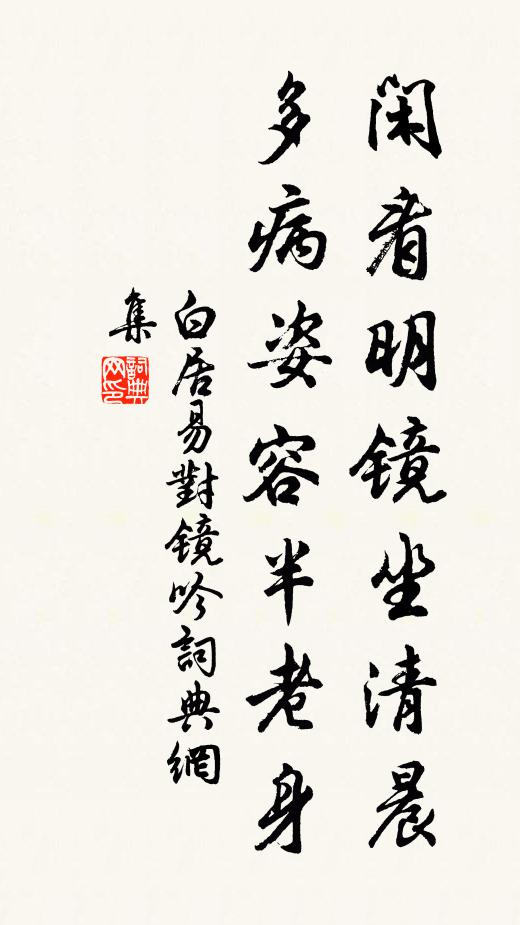 闲看明镜坐清晨
多病姿容半老身
白居易對镜吟詞典網
集
詞典網印